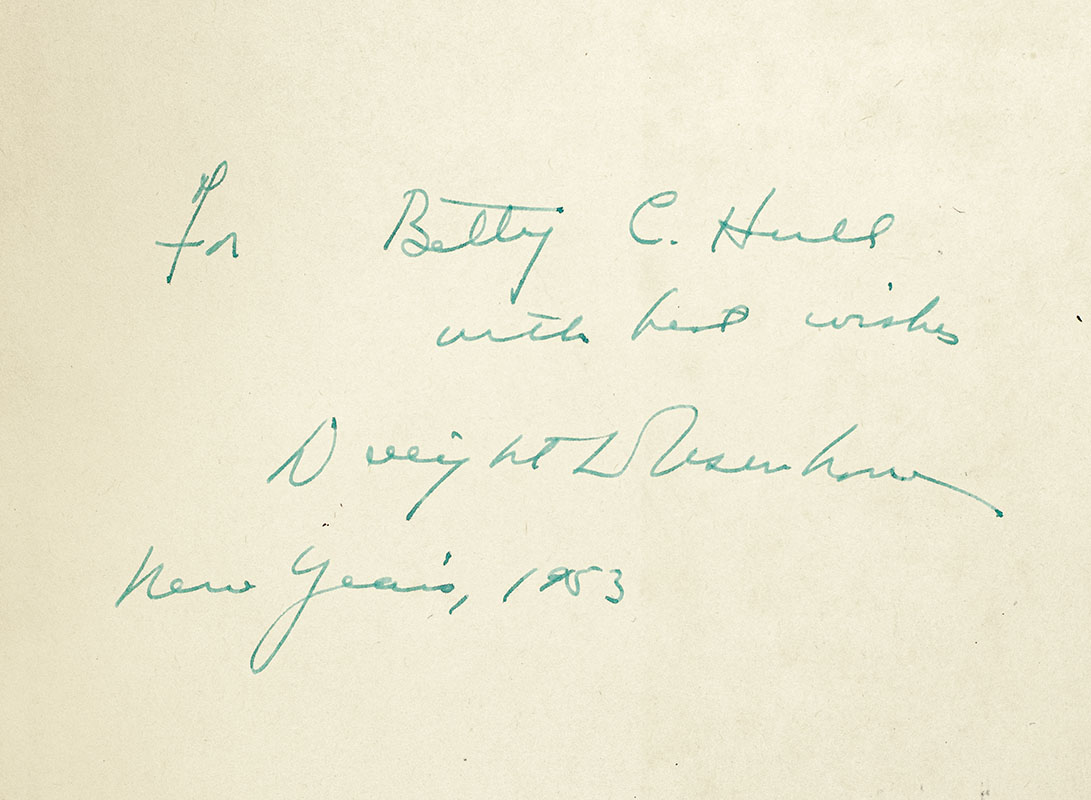 For Betty C. Hull
with best wishes
Dwight D Eisenhower
New Year's, 1953